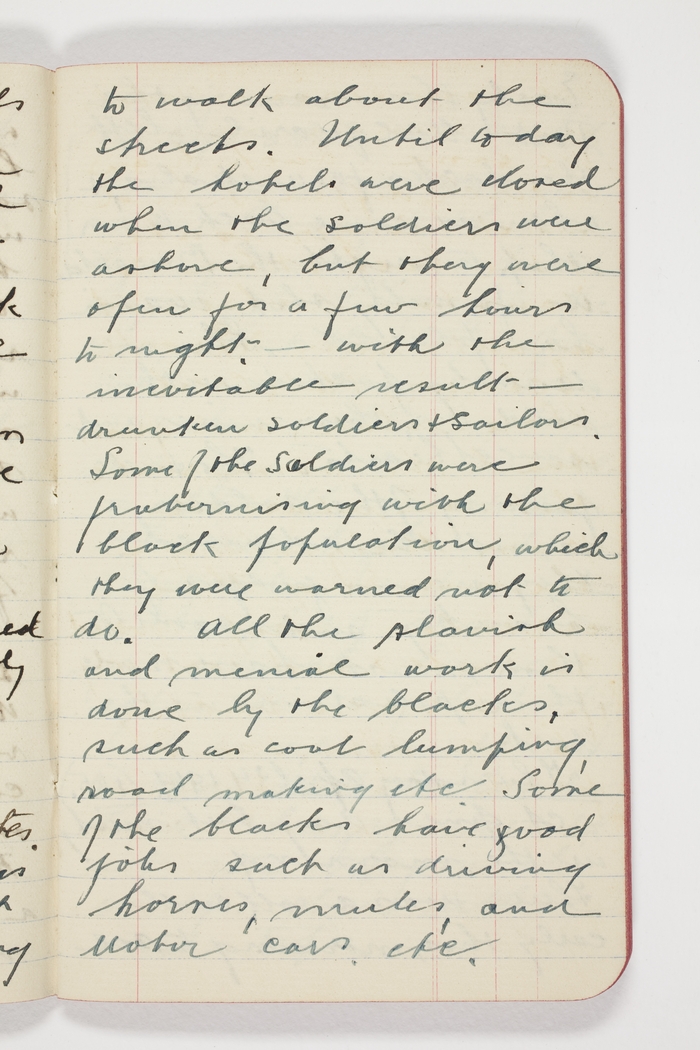 to walk about the
streets. Until today
the hotels were closed
when the soldiers were
ashore, but they were
open for a few hours
to night — with the
inevitable result —
drunken soldiers & sailors.
Some of the Soldiers were
fraternising with the
black population, which
they were warned not to
do. All the slavish
and menial work is
done by the blacks,
such as coal lumping,
road making etc Some
of the blacks have good
jobs such as driving
horses, mules, and
Motor cars. etc.